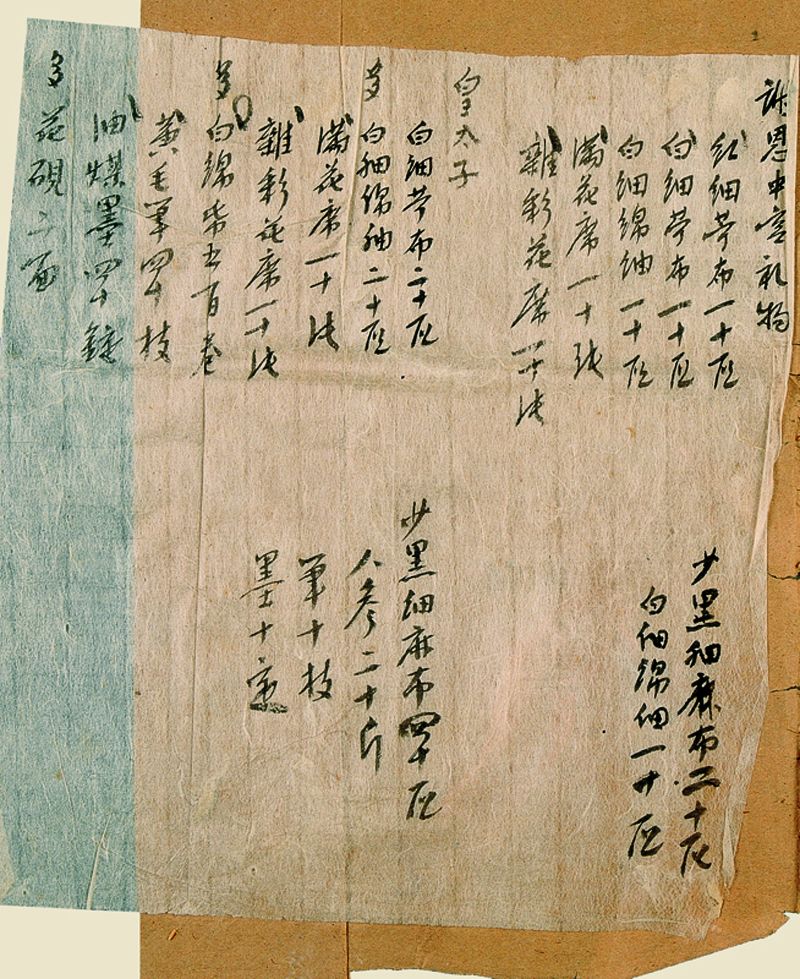 謝恩中宮礼物
紅細苧布一十疋
白細苧布一十疋
白細綿紬一十疋
滿花席一十張
雜彩花席一十張
少黑細麻布二十疋
白細綿紬一十疋
皇太子
白細苧布二十疋
多 白細綿紬二十疋
滿花席一十張
雜彩花席一十張
多 白綿紙五百卷
黃毛筆四十枝
油煤墨四十錠
多 花硯二面
少黑細麻布四十疋
人參二十斤
筆十枝
墨十定